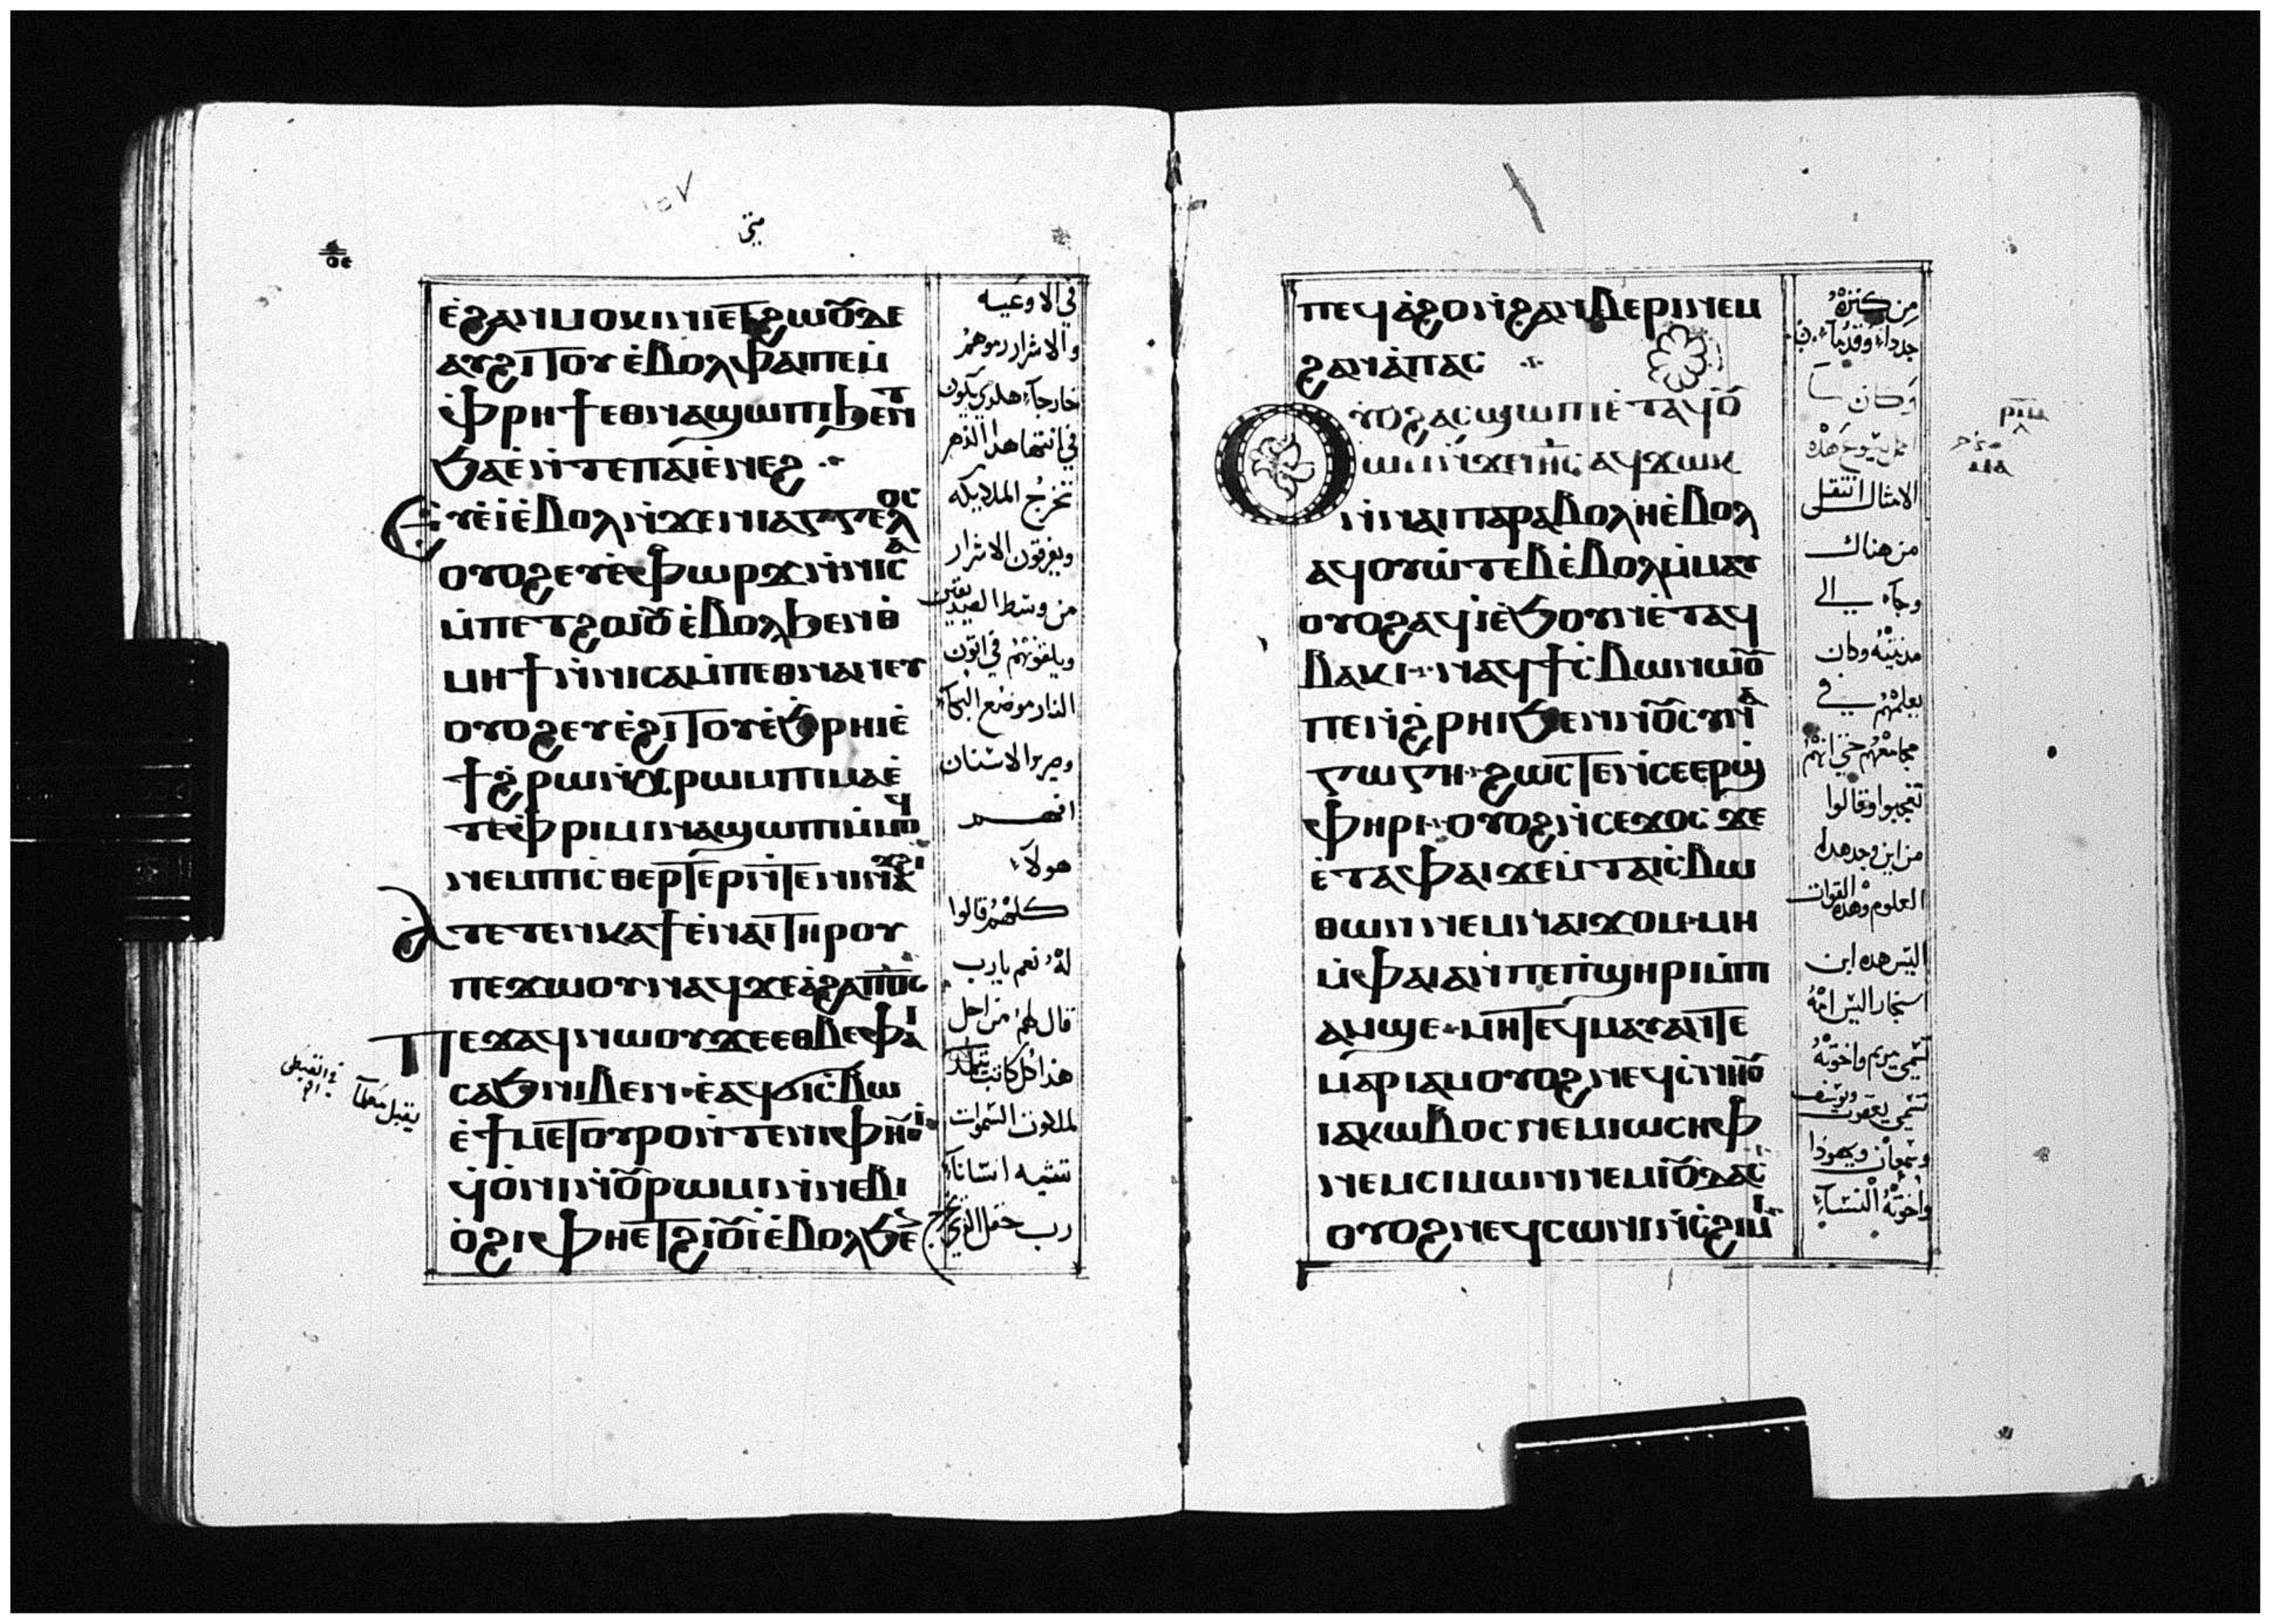 متى
ⲟⲉ
ⲉ̀ϩⲁⲛⲙⲟⲕⲓⲛⲛⲉⲧϩⲱⲟⲩⲇⲉ
ⲁⲩϩⲓⲧⲟⲩⲉ̀ⲃⲟⲗⲫⲁⲓⲡⲉⲙ̀
ⲫⲣⲏϯⲉⲑⲛⲁϣⲱⲡⲓϧⲉⲛϯ
ϧⲁⲉ̀ⲛ̀ⲧⲉⲡⲁⲓⲉ̀ⲛⲉϩ
ⲉⲩⲉ̀ⲓⲉ̀ⲃⲟⲗⲛ̀ϫⲉⲛⲓⲁⲅⲅⲉⲗⲟⲥ
ⲟⲩⲟϩⲉⲩⲉ̀ⲫⲱⲣϫⲛ̀ⲛⲓⲥⲁ
ⲙ̀ⲡⲉⲧϩⲱⲟⲩⲉ̀ⲃⲟⲗϧⲉⲛⲑ
ⲙⲏϯⲛ̀ⲛⲓⲥⲁⲙ̀ⲡⲉⲑⲛⲁⲛⲉⲩ
ⲟⲩⲟϩⲉⲩⲉ̀ϩⲓⲧⲟⲩⲉ̀ϧⲣⲏⲓⲉ̀
ϯϩ̀ⲣⲱⲛ̀ⲭ̀ⲣⲱⲙⲡⲓⲙⲁⲉ̀
ⲧⲉⲫ̀ⲣⲓⲙⲓⲛⲁϣⲱⲡⲓⲙ̀ⲙⲟϥ
ⲛⲉⲙⲡⲓⲥ̀ⲑⲉⲣⲧⲉⲣⲛ̀ⲧⲉⲛⲓⲛⲁϫϩⲓ
ⲁ̀ⲧⲉⲧⲉⲛⲕⲁϯⲉ̀ⲛⲁⲓⲧⲏⲣⲟⲩ
ⲡⲉϫⲱⲟⲩⲛⲁϥϫⲉⲁ̀ϩⲁⲡϭⲥ
ⲡⲉϫⲁϥⲛⲱⲟⲩϫⲉⲉⲑⲃⲉⲫⲁⲓ
ⲥⲁϧⲛⲓⲃⲉⲛⲉ̀ⲁϥϭⲓⲥ̀ⲃⲱ
ⲉ̀ϯⲙⲉⲧⲟⲩⲣⲟⲛ̀ⲧⲉⲛⲓⲫⲏⲟⲩⲓ̀
ϥ̀ⲟ̀ⲛⲓⲛ̀ⲟⲩⲣⲱⲙⲓⲛ̀ⲛⲉⲃⲓ
ⲟ̀ϩⲓⲫⲏⲉⲧϩⲓⲟⲩⲓ̀ⲉ̀ⲃⲟⲗϧⲉ
في الاوعيه
والاشرار رموهمُ
خارجآء هكدى يكون
في انتها هدا الدهر
تخرجُ الملايكه
ويفرقون الاشرار
من وسط الصديقين
ويلقونهُمْ في اتون
النار موضع البكآء
وصرير الاسنان
افهمـــتم
هولآء
كلهُمُ قالوا
لهُ نعم يارب
قال لهم من اجل
هذا كل كاتب يتلمد
لملكوت السموات
تشبه انسانآ
رب حقل الذي يخرج
يقبل معلمآ
في القبطي
ⲡⲉϥⲁ̀ϩⲟⲛ̀ϩⲁⲛⲃⲉⲣⲓⲛⲉⲙ
ϩⲁⲛⲁ̀ⲡⲁⲥ
ⲟⲩⲟϩⲁⲥϣⲱⲡⲓⲉ̀ⲧⲁϥϫⲟ
ⲱⲛ̀ϫⲉⲓⲏⲥⲁϥϫⲱⲕ
ⲛ̀ⲛⲁⲓⲡⲁⲣⲁⲃⲟⲗⲏⲉ̀ⲃⲟⲗ
ⲁϥⲟⲩⲱ̀ⲧⲉⲃⲉ̀ⲃⲟⲗⲙ̀ⲙⲁⲩ
ⲟⲩⲟϩⲁϥⲓ̀ⲉ̀ϧⲟⲩⲛⲉ̀ⲧⲁϥ
ⲃⲁⲕⲓⲛⲁϥϯⲥ̀ⲃⲱⲛⲱⲟⲩ
ⲡⲉⲛ̀ϩ̀ⲣⲏⲓϧⲉⲛⲛⲟⲩⲥⲩⲛⲁ
ⲅⲱⲅⲏϩⲱⲥⲧⲉⲛ̀ⲥⲉⲉⲣϣ̀
ⲫⲏⲣⲓⲟⲩⲟϩⲛ̀ⲥⲉϫⲟⲥϫⲉ
ⲉ̀ⲧⲁⲫⲁⲓϫⲉⲙⲧⲁⲓⲥ̀ⲃⲱ
ⲑⲱⲛⲛⲉⲙⲛⲁⲓϫⲟⲙⲙⲏ
ⲙ̀ⲫⲁⲓⲁⲛⲡⲉⲡ̀ϣⲏⲣⲓⲙ̀ⲡⲓ
ⲁⲙϣⲉⲙⲏⲧⲉϥⲙⲁⲩⲁⲛⲧⲉ
ⲙⲁⲣⲓⲁⲙⲟⲩⲟϩⲛⲉϥⲥ̀ⲛⲏⲟⲩ
ⲓⲁⲕⲱⲃⲟⲥⲛⲉⲙⲓⲱⲥⲏⲫ
ⲛⲉⲙⲥⲓⲙⲱⲛⲛⲉⲙⲓⲟⲩⲇⲁⲥ
ⲟⲩⲟϩⲛⲉϥⲥⲱⲛⲓⲛ̀ⲥ̀ϩⲓⲙⲓ
من كنزهُ
جددآء وقدمآء
وكان لما
اكمل يسوع هذه
الامثال انتقل
من هناك
وجآء الى
مدينتهُ وكان
يعلمهُم في
مجامعهُم حتى انهُم
تعجبوا وقالوا
من اين وجد هدا
العلوم وهذه القوات
اليس هده ابن
النجار اليس امهُ
تسمى مريم واخوتهُ
تسمى يعقوب ويوسف
وسمعان ويهودا
واخوتهُ النسآء
ⲙⲁ